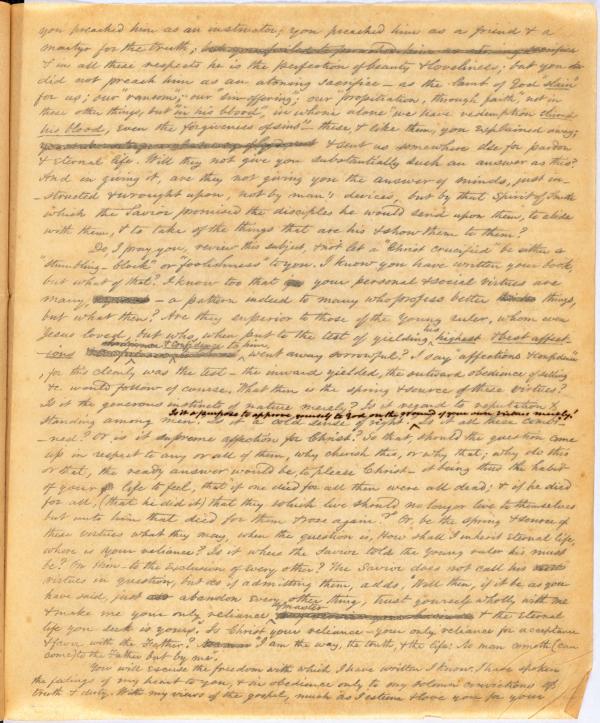 you preached him as an instructor; you preached him as a friend & a
martyr for the truth;
& in all these respects he is the perfection of beauty & loveliness; but you
did not preach him as an atoning sacrifice – as the lamb of God "slain"
for us; our "ransom"; our "sin-offering; our "propitiation, through faith, not in
these other things, but "in his blood, in whom alone we have redemption through
his blood, even the forgiveness of sins – these & like them, you explained away;
& sent us somewhere else for pardon
& eternal life. Will they not give you substantially such an answer as this?
And in giving it, are they not giving you the answer of minds, just in-
-structed & wrought upon, not by man's devices, but by that Spirit of Truth
which the Savior promised the disciples he would send upon them, to abide
with them, & to take of the things that are his & show them to them?
Do, I pray you, review this subject, & not let a "Christ crucified" be either a
"stumbling-block" or "foolishness" to you. I know you have written your book,
but what of that? I know too that your personal & social virtues are
many, – a pattern indeed to many who profess better things,
but what then? Are they superior to those of the young ruler, whom even
Jesus loved, but who, when put to the test of yielding his highest & best affect-
-ions & confidence to him, went away sorrowful? I say "affections & confidence"
, for this clearly was the test – the inward yielded, the outward obedience of selling
&c. would follow of course. What then is the spring & source of these virtues?
Is it the generous instincts of nature merely? Is it regard to reputation &
Is it a purpose to approve yourself to God on the ground of your own virtues merely?
standing among men? Is it a cold sense of right? Is it all these combi-
-ned? Or is it supreme affection for Christ? So that, should the question come
up in respect to any or all of them, why cherish this, or why that; why do this
or that, the ready answer would be, to please Christ – it being thus the habit
of your life to feel, that if one died for all then were all dead; & if he died
for all, (that he did it) that they which live should no longer live to themselves
but unto him that died for them & rose again?" Or, be the spring & source of
these virtues what they may, when the question is, How shall I inherit eternal life,
where is your reliance? Is it where the Savior told the young ruler his must
be? On Him – to the exclusion of every other? The Savior does not call his
virtues in question, but as if admitting them, adds, "Well then, if it be as you
have said, just abandon every other thing, trust yourself wholly with me
& make me your only reliance & master & the eternal
life you seek is yours." Is Christ your reliance – your only reliance for acceptance
& favor with the Father? I am the way, the truth, & the life: No man cometh (can
come) to the Father but by me.
You will excuse the freedom with which I have written I know. I have spoken
the feelings of my heart to you, & in obedience only to my solemn convictions of
truth & duty. With my views of the gospel, much as I esteem & love you for your